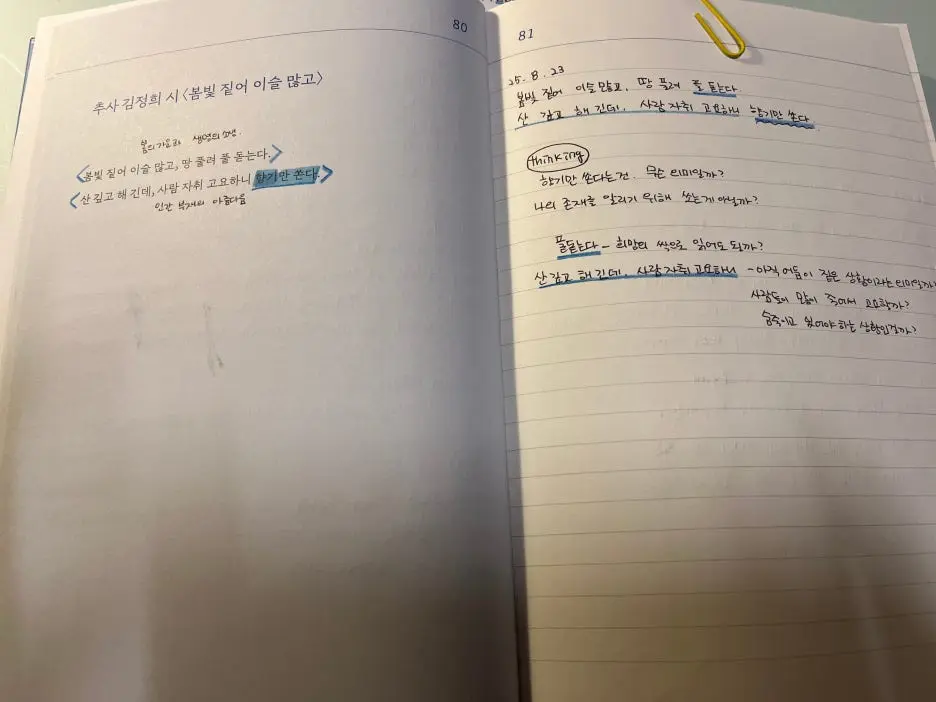 80
추사 김정희 시 〈봄빛 짙어 이슬 많고〉
봄의 기운과 생명의 소생.
<봄빛 짙어 이슬 많고, 땅 풀려 풀 돋는다.>
<산 깊고 해 긴데, 사람 자취 고요하니 향기만 쏜다.>
인간 부재의 아름다움
81
25. 8. 23
봄빛 짙어 이슬 많고, 땅 풀려 풀 돋는다
산 깊고 해 긴데, 사람 자취 고요하니 향기만 쏜다.
thinking
향기만 쏜다는건 무슨 의미일까?
나의 존재를 알리기 위해 쏘는게 아닐까?
풀돋는다 - 희망의 싹으로 읽어도 될까?
산 깊고 해 긴데, 사람 자취 고요하니 - 아직 어둠이 짙은 상황이라는 의미일까?
사람들이 많이 죽어서 고요할까?
숨죽이고 있어야 하는 상황인걸까?